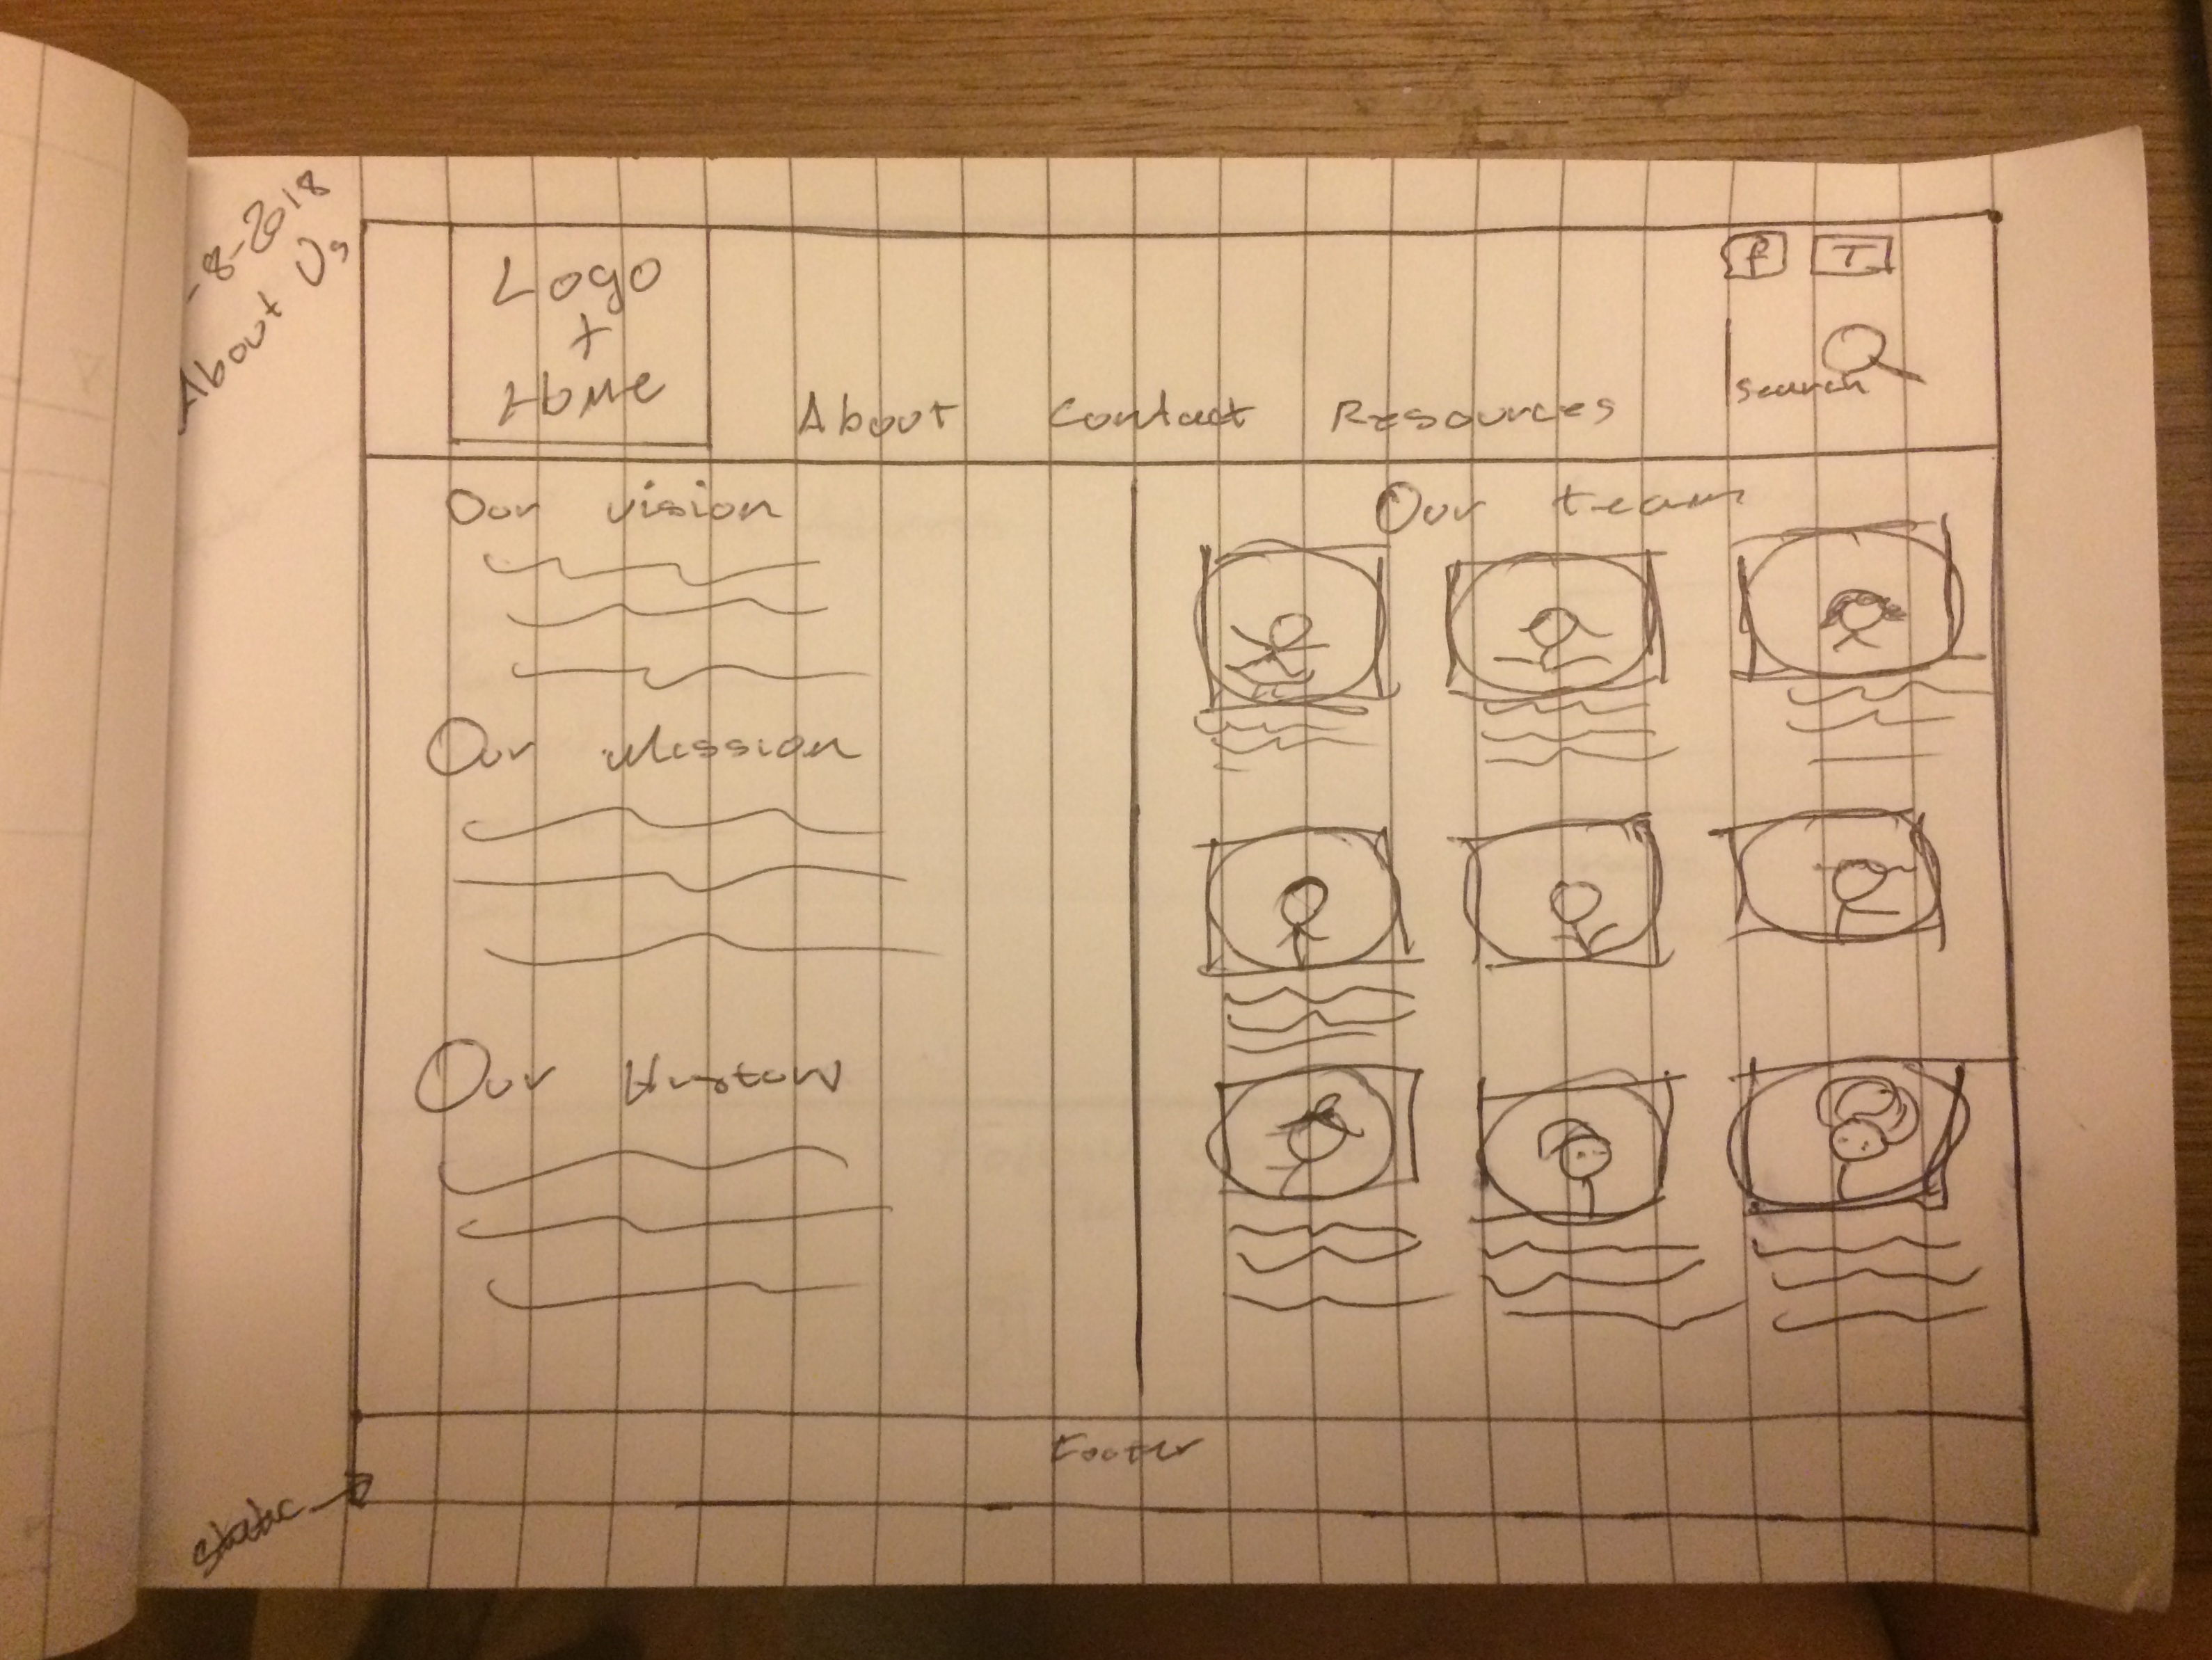 -8-2018
About Us
Logo
+
Home
f
T
About Contact Resources
Search
Our vision
Our team
Our Mission
Our History
Footer
static